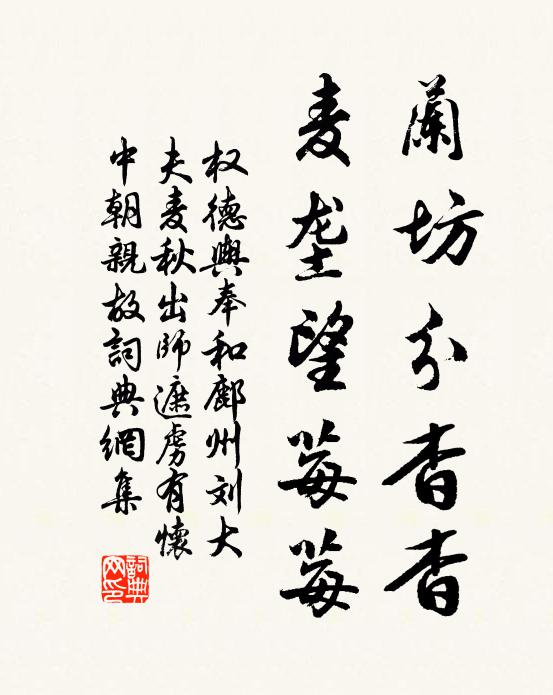 蘭坊分杳杳
麦垄望莓莓
权德輿奉和鄜州刘大
夫麦秋出師遮虏有懷
中朝親故詞典網集
詞典
网印